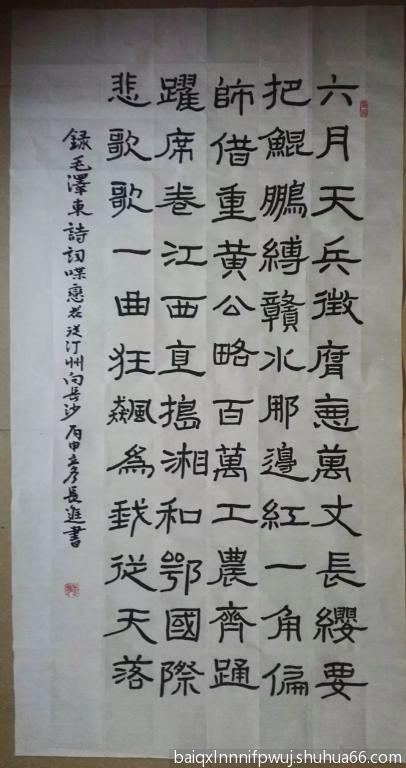 六月天兵徵腐惡萬丈長纓要
把鯤鵬縛贛水那邊紅一角偏
師借重黃公略百萬工農齊踊
躍席卷江西直搗湘和鄂國際
悲歌歌一曲狂飆為我從天落
録毛澤東詩詞喋戀花從汀州向長沙 丙申 長進書
baiqxlnnnifpwuj.shuhua66.com